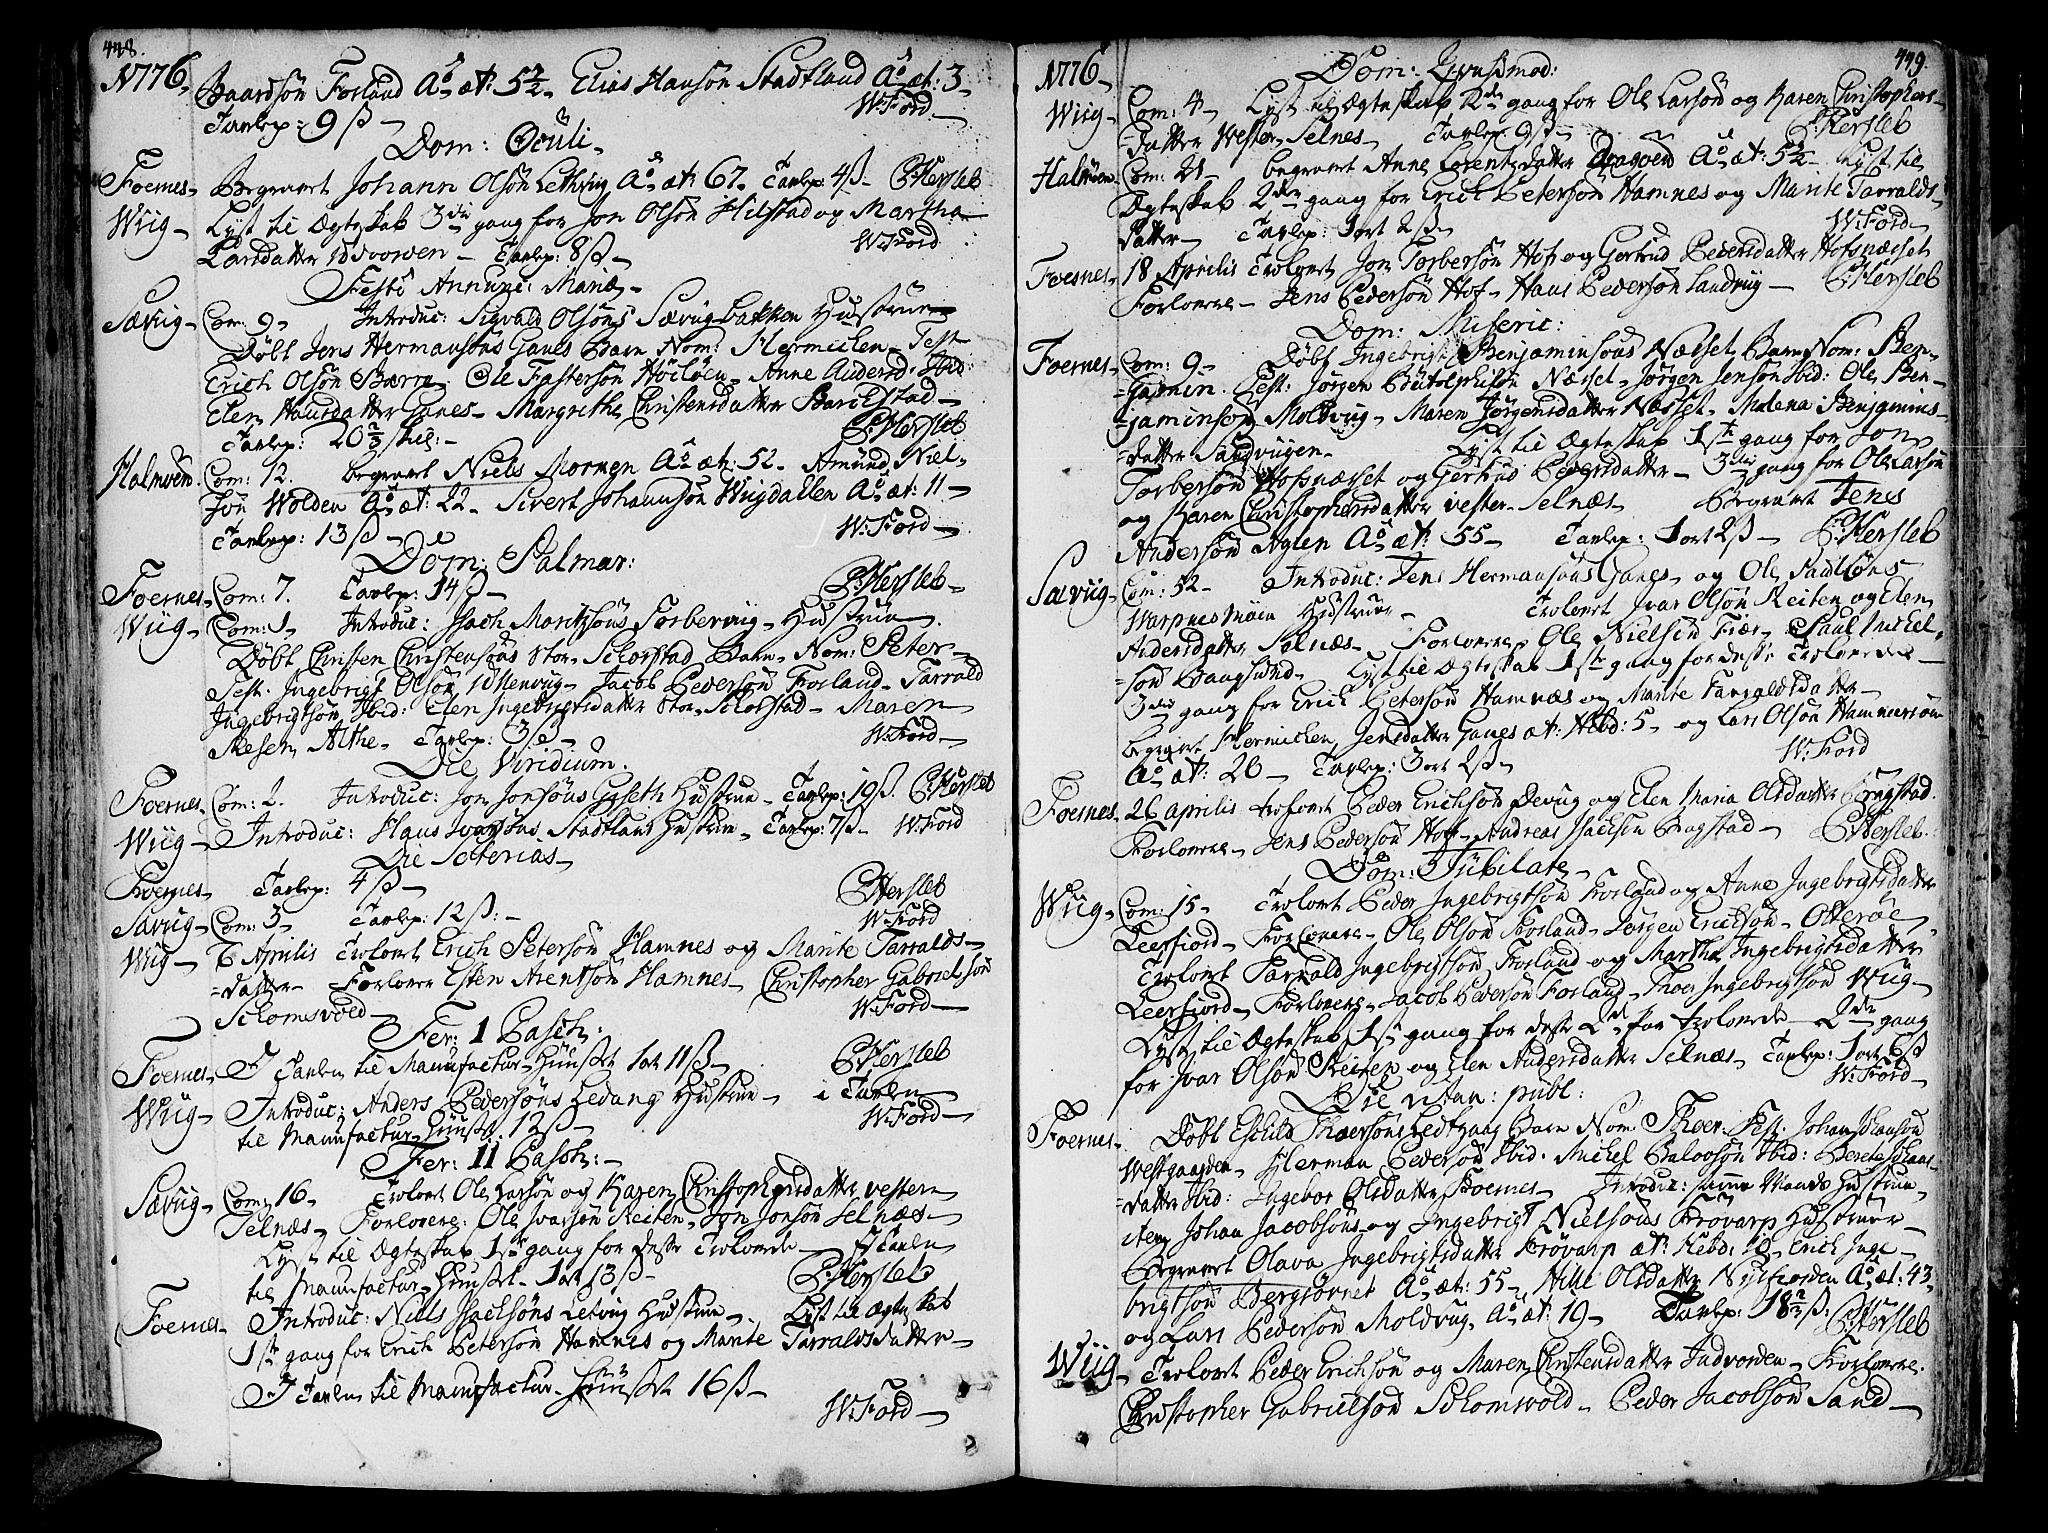 448.
1776. Baardsön Forland Ao æt: 5 1/2 Elias Hansön Stadtland Ao æt: 3-
Tavlep: 9 ß - W: Ford
Dom: Oculi -
Foernes- Begravet Johann Olsön Lethvug Ao æt: 67. Tavlep: 4 ß - P: Hersleb
Wiig- Lyst til Ægteskab 3die gang for Jon Olsön Hilstad og Martha
Larsdatter Tavlep: 8 ß W: Ford
Festi Annunc: Mariæ-
Sævug- Com: 9- Introduc: Sigvald Olsöns Sævugbakken Hustrue
Döbt Jens Hermansöns Ganes Barn Nom: Hermichen- Test
Erich Olsön Ole Fastersön Höilöen- Anne Andersd: Ibid:
Elen Hansdatter Ganes- Margrethe Christensdatter
Tavlep: 20 2/3 skil:- P: Hersleb
Halmöen. Com: 12. begravet Niels Mornen Ao æt: 52- Amund Niel-
sön Wolden Ao æt: 22- Sivert Johannsön Wiigdallen Ao æt: 11-
Tavlep: 13 ß - W: Ford
Dom: Palmar:
Foernes- Com: 7. Tavlep: 14 ß - P: Hersleb-
Wiig- Com: 1- Introduc: Isach Moritzöns Torberviig- Hustrue.
Döbt Christen Christensöns Stor-Schorstad Barn- Nom: Peter-
Test: Ingebrigt Olsön Jacob Pedersön Forland- Tarrald
Ingebrigtsön Ibid: Elen Ingebrigtsdatter Stor-Schorstad- Maren
Althe- Tavlep: 3 ß - W: Ford-
Die Viridium.
Foernes. Com: 2. Introduc: Jon Jonsöns Hustrue- Tavlep: 19 ß. P: Hersleb
Wiig- Introduc: Hans Ivarsöns Stadtland Hustrue- Tavlep: 7 ß- W: Ford
Die
Foernes- Tavlep: 4 ß - P: Hersleb
Sævug- Com: 3- Tavlep: 12 ß:- W: Ford
Wiig- 6 Aprilis Trolovet Erich Petersön Hamnes og Marite Tarralds-
=datter- Forlover Esten Arentsön Hamnes- Christopher Gabrielsön
Schomsvold- W: Ford-
Fer: 1 Pasch:
Foernes- I Tavlen til Manufactur-Huuset 1 ort 11 ß- P: Hersleb
Wiig- Introduc: Anders Pedersöns Ledang Hustrue- i Tavlen
til Manufactur-Huuset. 12 ß - W: Ford-
Fer: 11 Pasch:-
Sævug- Com: 16- Trolovet Ole Larsön og Karen Christophersdatter vester-
Selnæs- Forlovere: Ole Ivarsön Reiten- Jon Jonsön Selnæs-
Lyst til Ægteskab 1ste gang for desse Trolovede- I Tavlen
til Manufactur-Huuset- 1 ort 13 ß- P: Hersleb
Foernes- Introduc: Niels Isachsöns Letvug Hustrue- Lyst til Ægteskab
1ste gang for Erich Petersön Hamnes og Marite Tarraldsdatter-
I Tavlen til Manufactur-Huuset 16 ß -
W: Ford-
449.
1776- Dom: Qvasimod:
Wiig- Com: 4- Lyst til Ægteskab 2den gang for Ole Larsön og Karen Christophers-
datter Wester-Selnes- Tavlep: 9 ß - P: Hersleb
Halmöen- Com: 21- begravet Anne Lorentzdatter Ao æt: 5 1/2- Lyst til
Ægteskab 2den gang for Erich Petersön Hamnes og Marite Tarralds-
datter- Tavlep: 1 ort 2 ß- W: Ford-
Foesnes- 18 Aprilis Trolovet Jon Torbersön Hof og Gertrud Pedersdatter Hofsnæsset
Forlovere- Jens Pedersön Hof- Hans Pedersön Landviig- P: Hersleb
Dom: Miseric:
Foernes- Com: 9- Döbt Ingebrigt Benjaminsöns Næsset Barn Nom: Ben-
=jamin. Test: Jörgen Bütolphsön Næsset- Jörgen Jensön Ibid: Ole Ben-
=jaminsön Moldvug- Maren Jörgensdatter Næsset- Malena Benjamins-
=datter Sandviigen- Lyst til Ægteskab 1ste gang for Jon
Torbersön Hofsnæsset og Gertrud Pedersdatter- 3die gang for Ole Larsön
og Karen Christophersdatter vester-Selnæs- Begravet Jenes
Andersön Aglen Ao æt: 55- Tavlep: 1 ort 2 ß- P: Hersleb
Sævug- Com: 52- Introduc: Jens Hermansöns Ganes- og Ole Paulsöns
Warpnesmoen Hustruer- Trolovet Ivar Olsön Reiten og Elen
Andersdatter Selnæs- Forlovere Ole Nielsön Fiær- Paul Michel-
=sön Baagsund- Lyst til Ægteskab 1ste gang for desse Trolovede-
3die gang for Erich Petersön Hamnæs og Marite Tarraldsdatter-
begravet Hermichen Jensdatter Ganes æt: Hebd: 5- og Lars Olsön
Ao æt: 20- Tavlep: 3 ort 2 ß- W: Ford
Foesnes- 26 Aprilis trolovet Peder Erichsön Devug og Elen Maria Olsdatter Bragstad.
Forlovere- Jens Pedersön Hof- Andreas Isachsön Bragstad- P: Hersleb.
Dom: Jubilate-
Wiig- Com: 15- Trolovet Peder Ingebrigtsön Forland og Anne Ingebrigtsdatter
Leerfiord- Forlovere- Ole Olsön Forland- Jörgen Erichsön- Otteröe-
Trolovet Tarrald Ingebrigtsön Forland og Martha Ingebrigtsdatter
Leerfiord- Forlovere- Jacob Pedersön Forland- Thoer Ingebrigtsön Wiig-
Lyst til Ægteskab 1ste gang for desse 2de par trolovede- 2den gang
for Ivar Olsön Reiten og Elen Andersdatter Selnæs- Tavlep: 1 ort 6 ß
W: Ford-
Die publ:
Foernes- Döbt Eschild Thoersöns Barn Nom: Thoer. Test: Johan Johansön
Westgaarden- Herman Pedersön Ibid: Michel Ibid: Berete
=datter Ibid: Ingebor Olsdatter Foernes- Introduc: samme Mands Hustrue-
item Johan Jacobsöns og Ingebrigt Nielsöns Hustruer-
Begravet Olava Ingebrigtsdatter æt: Hebd: 10- Erich Inge-
brigtsön Ao æt: 55- Olsdatter Ao æt: 43-
og Lars Pedersön Moldvug- Ao æt: 19- Tavlep: 18 2/3 ß: P: Hersleb
Wiig- Trolovet Peder Erichsön og Maren Christensdatter Indvorden- Forlovere:
Christopher Gabrielsön Schomsvold- Peder Jacobsön Sand-